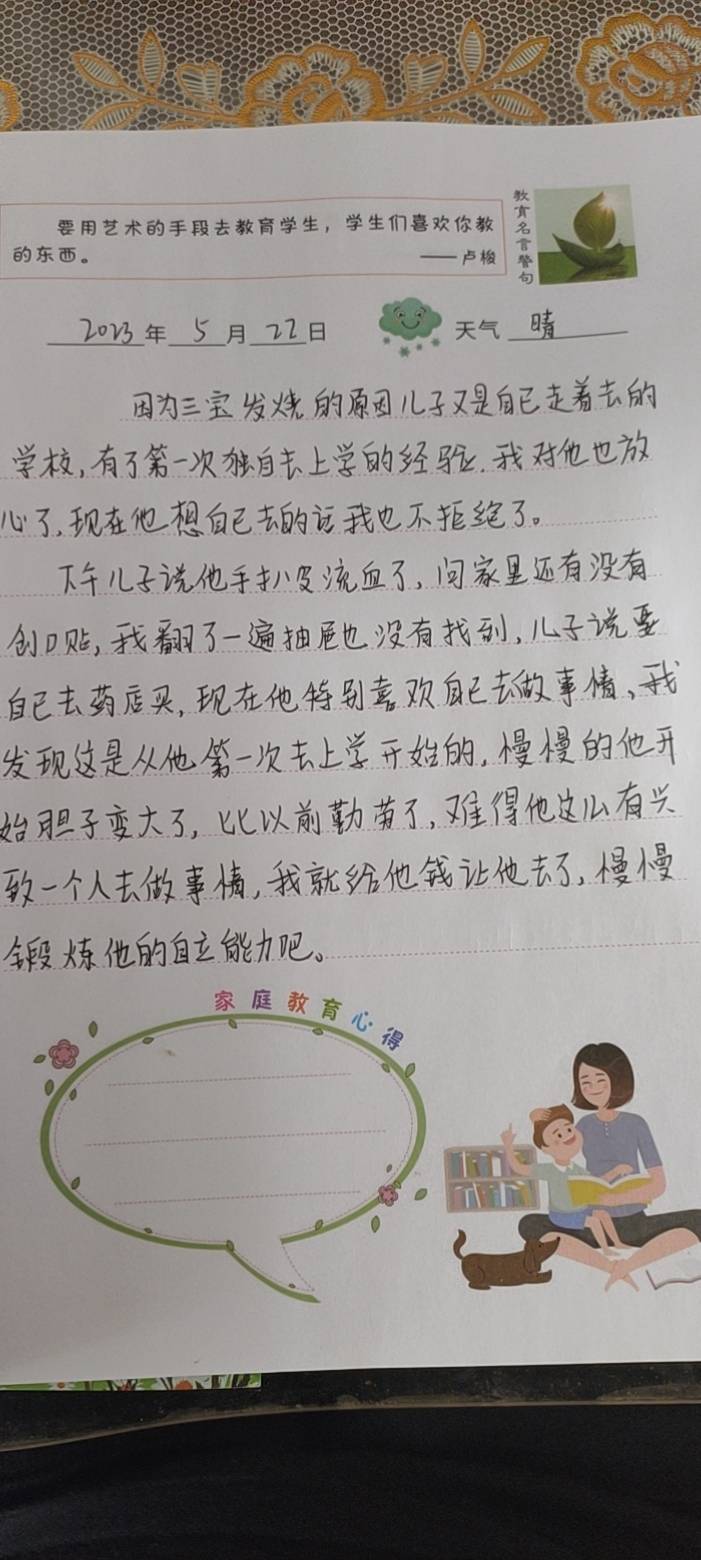 要用艺术的手段去教育学生，学生们喜欢你教
的东西。
——卢梭
教育名言警句
2023年 5月 22日 天气 晴
因为三宝发烧的原因儿子又是自己走着去的
学校，有了第一次独自去上学的经验，我对他也放
心了，现在他想自己去的话我也不拒绝了。
下午儿子说他手扒皮流血了，问家里还有没有
创口贴，我翻了一遍抽屉也没有找到，儿子说要
自己去药店买，现在他特别喜欢自己去做事情、我
发现这是从他第一次去上学开始的，慢慢的他开
始胆子变大了，比以前勤劳了，难得他这么有兴
致一个人去做事情，我就给他钱让他去了，慢慢
锻炼他的自立能力吧。
家庭教育心得